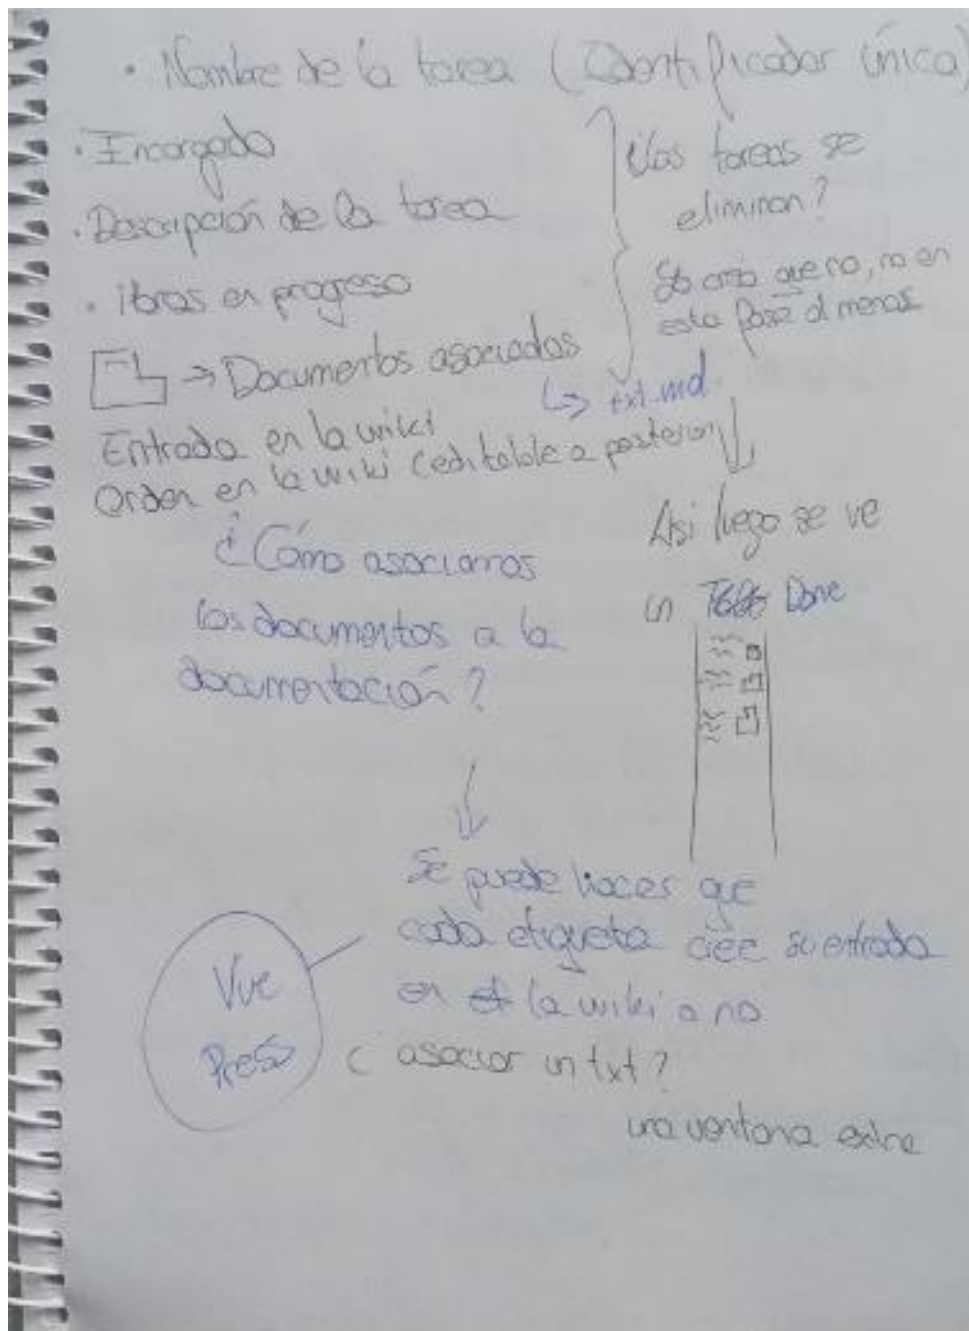 · Nombre de la tarea (Identificador único)
· Encargado
· Descripción de la tarea
· Horas en progreso
→ Documentos asociados
↳ txt.md
Entrada en la wiki
Orden en la wiki (editable a posteriori)
¿Las tareas se
eliminan?
Yo creo que no, no en
esta fase al menos
Así luego se ve
un Done
¿Cómo asociamos
los documentos a la
documentación?
Se puede hacer que
cada etiqueta cree su entrada
en la wiki o no
¿ asociar un txt?
una ventana
Vue
Press